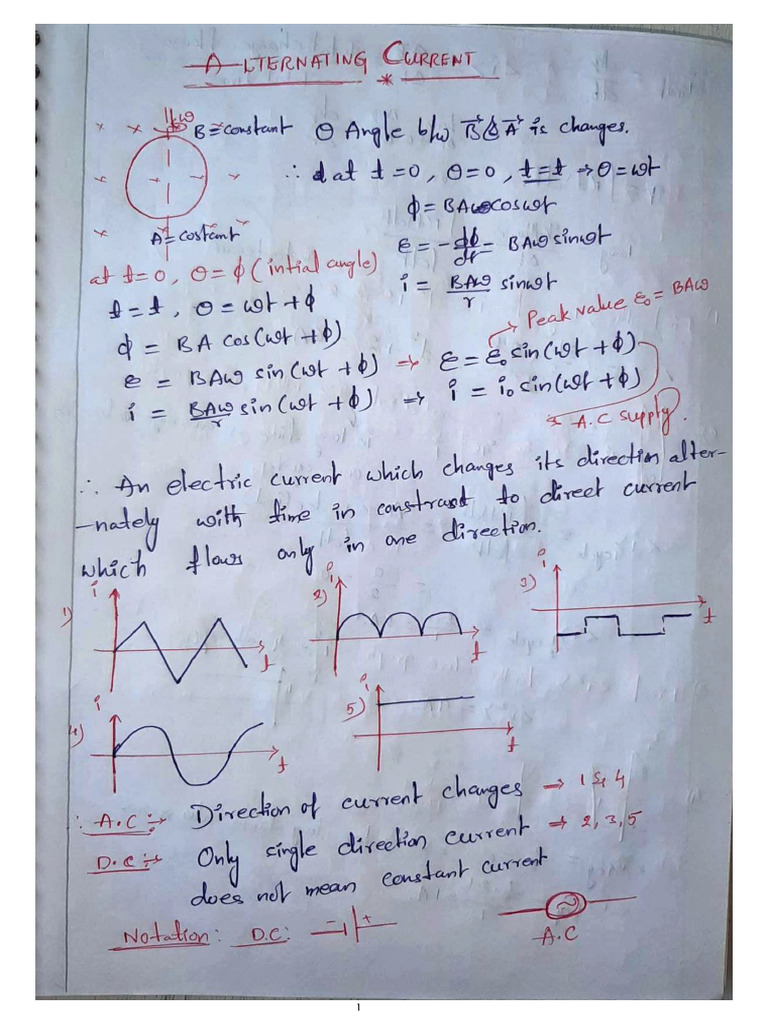 ALTERNATING CURRENT
*
ω
B = constant θ Angle b/w B⃗ & A⃗ is changes.
∴ at t=0, θ=0, t=t ⇒ θ=ωt
ϕ = BA cosωt
A = costant
ε = -dϕ/dt = BAω sinωt
at t=0, θ = ϕ (intial angle)
i = BAω/r sinωt
t=t, θ = ωt + ϕ
→ Peak value ε₀ = BAω
ϕ = BA cos(ωt + ϕ)
ε = BAω sin(ωt + ϕ) ⇒ ε = ε₀ sin(ωt + ϕ)
i = BAω/r sin(ωt + ϕ) ⇒ i = i₀ sin(ωt + ϕ)
A.C supply.
∴ An electric current which changes its direction alter-
-nately with time in constrast to direct current
which flows only in one direction.
1) i t
2) i t
3) i t
4) i t
5) i t
∴ A.C :→ Direction of current changes → 1 & 4
D.C :→ Only single direction current → 2, 3, 5
does not mean constant current
Notation: D.C: - + ~
A.C
1